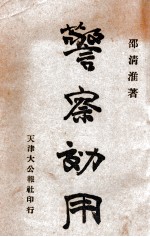 邵清淮著
警察効用
天津大公報社印行